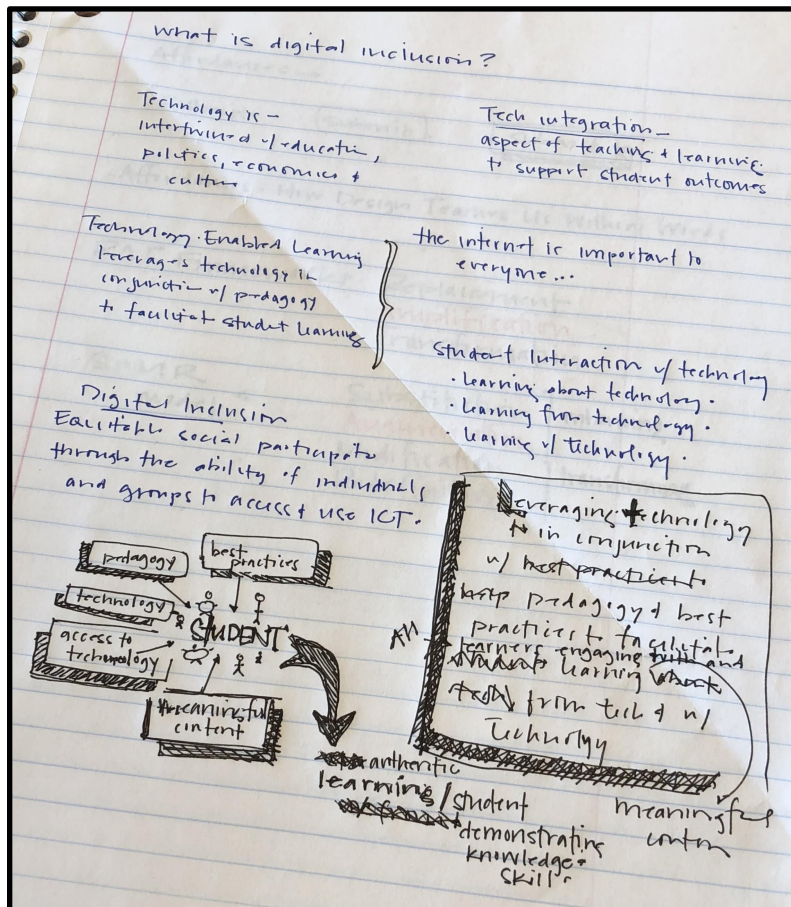 what is digital inclusion?
Technology is -
intertwined w/ education,
politics, economics +
culture
Tech integration -
aspect of teaching + learning
to support student outcomes
Technology-Enabled Learning
leverages technology in
conjunction w/ pedagogy
to facilitate student learning
the internet is important to
everyone...
student interaction w/ technology
• learning about technology.
• learning from technology.
• learning w/ technology.
Digital Inclusion
Equitable social participate
through the ability of individuals
and groups to access & use ICT.
pedagogy
best
practices
technology
access to
technology
STUDENT
meaningful
content
authentic
learning / student
demonstrating
knowledge +
skill.
Leveraging technology
in conjunction
w/ best practices to
help pedagogy & best
practices to facilitate
All learners engaging with and
learning about
from tech & w/
technology
meaningful
content